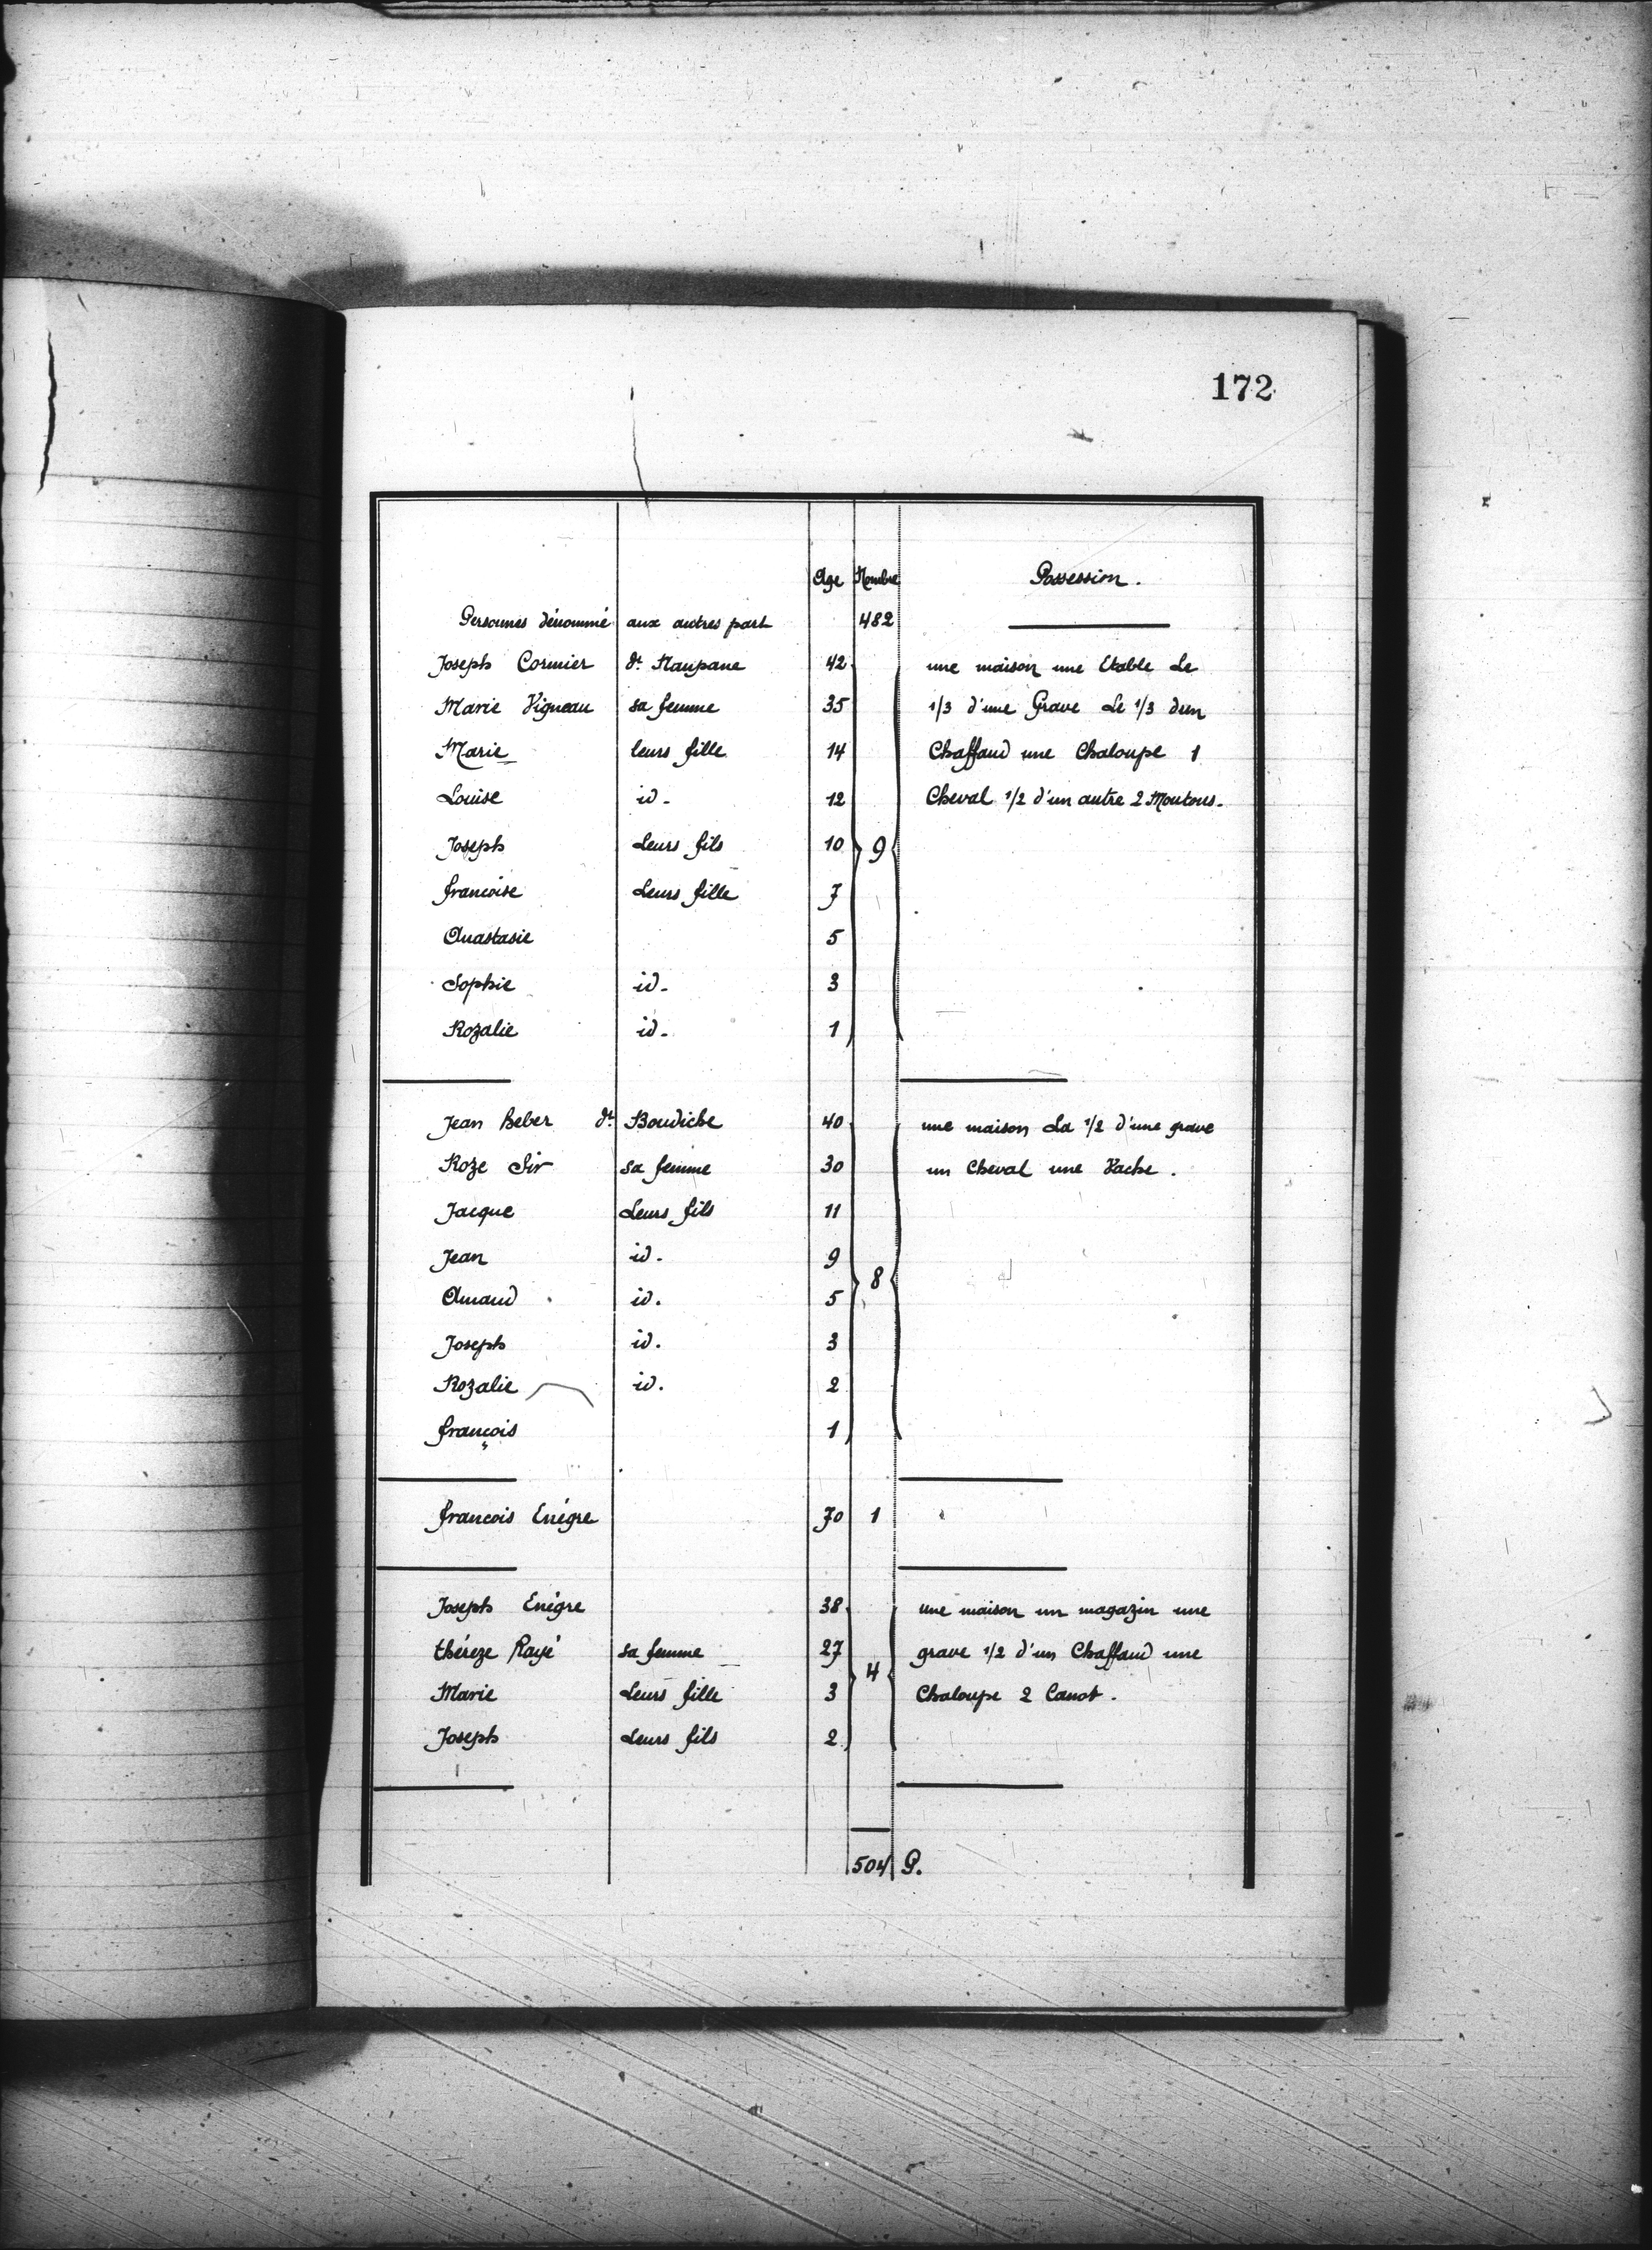 172
Age Nombre Possession.
Personnes dénommé aux autres part 482
Joseph Cormier dt. Maupane 42 une maison une Etable Le
Marie Vigneau sa femme 35 1/3 d'une Grave Le 1/3 dun
Marie leurs fille 14 Chaffaud une Chaloupe 1
Louise id. 12 Cheval 1/2 d'un autre 2 Moutons.
Joseph Leurs fils 10 9
francoise Leurs fille 7
Anastasie 5
Sophie id. 3
Rozalie id. 1
Jean heber dt Bourdiche 40 une maison La 1/2 d'une grave
Roze Sir sa femme 30 un Cheval une Vache.
Jacque Leurs fils 11
Jean id. 9
8
Amand id. 5
Joseph id. 3
Rozalie id. 2
françois 1
francois Enégre 70 1
Joseph Enégre 38 une maison un magazin une
théreze Rayé sa femme 27 grave 1/2 d'un Chaffaud une
Marie Leurs fille 3 4 Chaloupe 2 Canot.
Joseph Leurs fils 2
504 P.